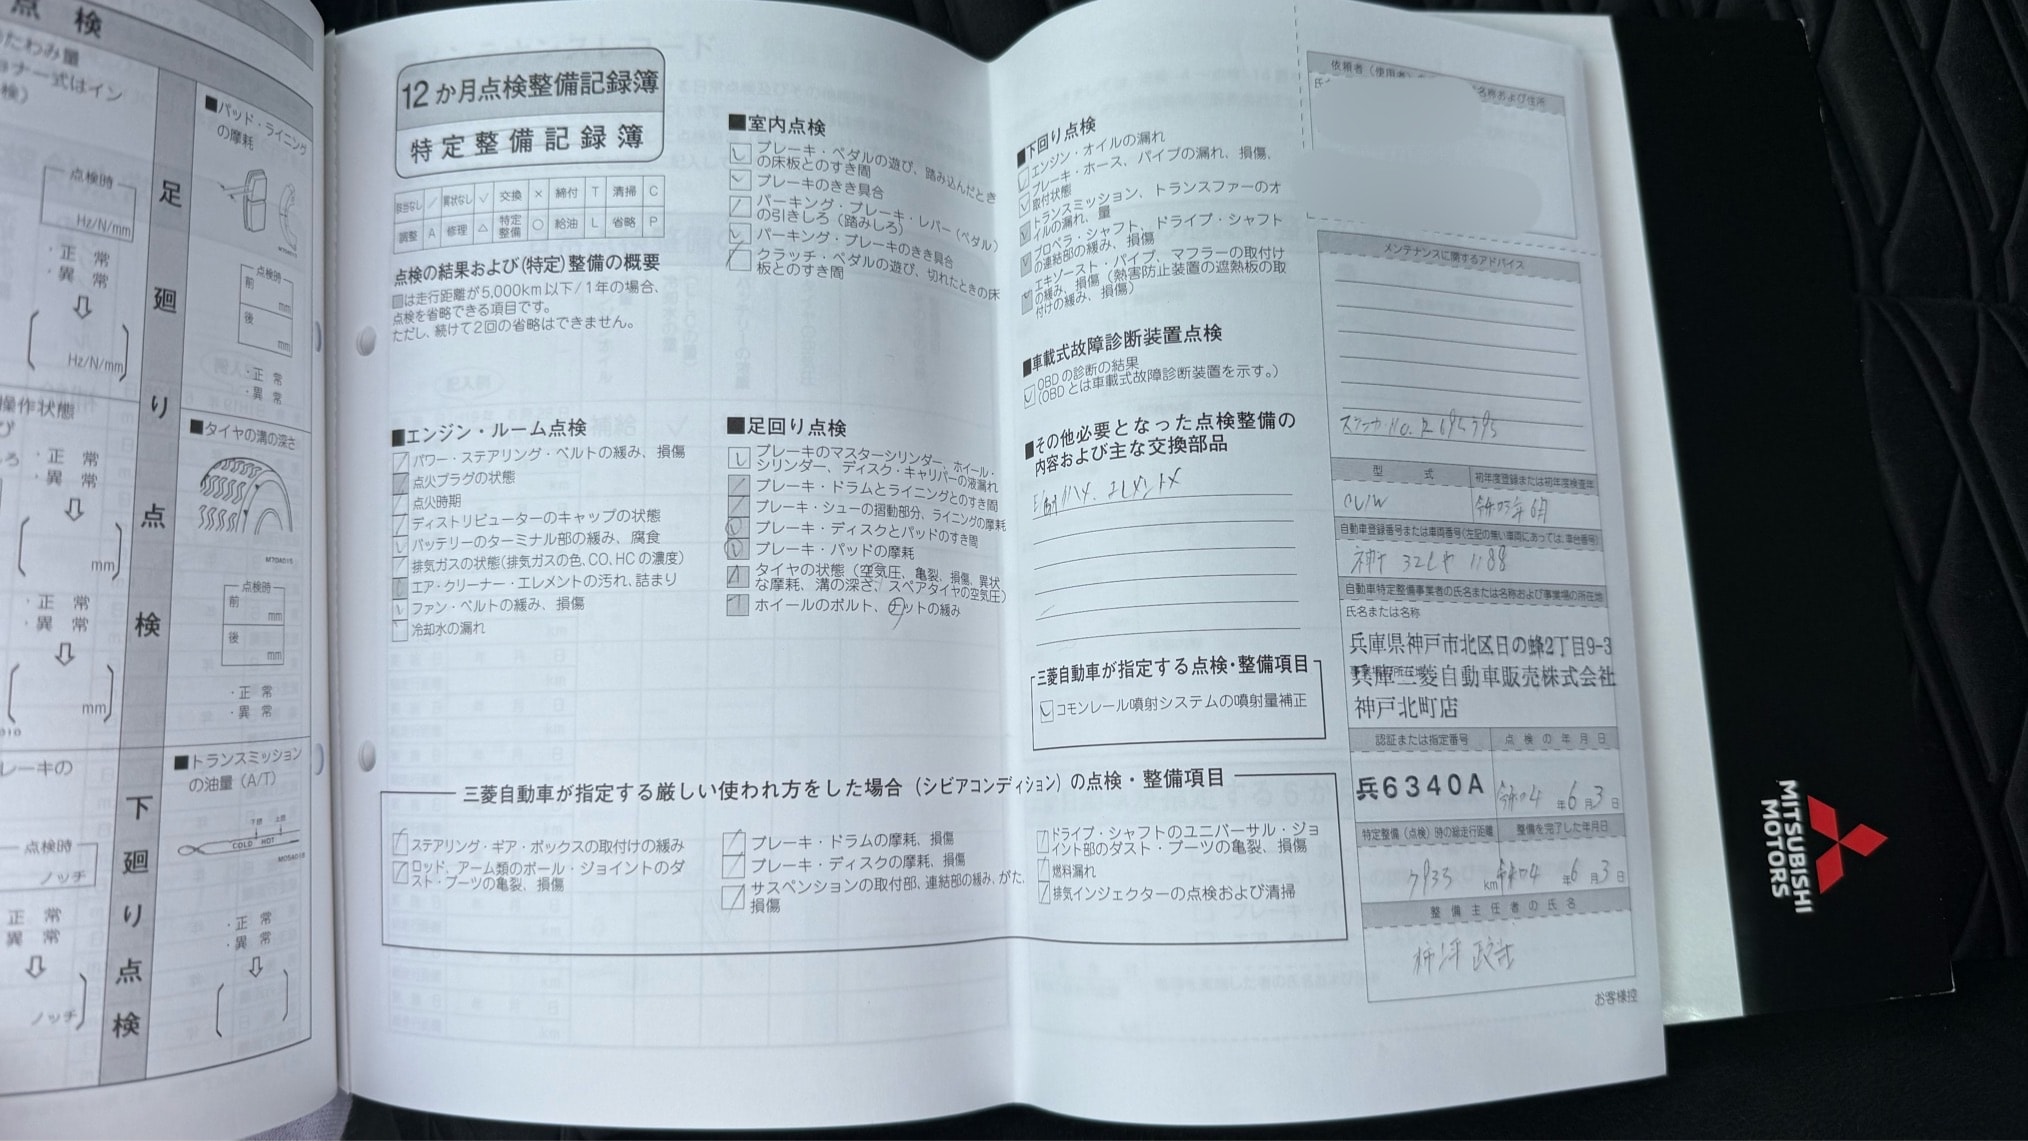 点検
たわみ量
ナー式はイン
検)
点検時
Hz/N/mm
・正 常
・異 常
Hz/N/mm
操作状態
・正 常
・異 常
mm
・正 常
・異 常
mm
レーキの
点検時
ノッチ
正 常
異 常
ノッチ
足廻り点検
下廻り点検
■パッド・ライニング
の摩耗
点検時
前
mm
後
mm
・正 常
・異 常
■タイヤの溝の深さ
点検時
前
mm
後
mm
・正 常
・異 常
■トランスミッション
の油量(A/T)
COLD HOT
・正 常
・異 常
12か月点検整備記録簿
特定整備記録簿
該当なし / 異状なし ✓ 交換 × 締付 T 清掃 C
調整 A 修理 △ 特定整備 ○ 給油 L 省略 P
点検の結果および(特定)整備の概要
は走行距離が5,000km以下/1年の場合、
点検を省略できる項目です。
ただし、続けて2回の省略はできません。
■エンジン・ルーム点検
パワー・ステアリング・ベルトの緩み、損傷
点火プラグの状態
点火時期
ディストリビューターのキャップの状態
バッテリーのターミナル部の緩み、腐食
排気ガスの状態(排気ガスの色、CO、HCの濃度)
エア・クリーナー・エレメントの汚れ、詰まり
ファン・ベルトの緩み、損傷
冷却水の漏れ
■室内点検
ブレーキ・ペダルの遊び、踏み込んだとき
の床板とのすき間
ブレーキのきき具合
パーキング・ブレーキ・レバー(ペダル)
の引きしろ(踏みしろ)
パーキング・ブレーキのきき具合
クラッチ・ペダルの遊び、切れたときの床
板とのすき間
■足回り点検
ブレーキのマスターシリンダー、ホイール・
シリンダー、ディスク・キャリパーの液漏れ
ブレーキ・ドラムとライニングとのすき間
ブレーキ・シューの摺動部分、ライニングの摩耗
ブレーキ・ディスクとパッドのすき間
ブレーキ・パッドの摩耗
タイヤの状態(空気圧、亀裂、損傷、異状
な摩耗、溝の深さ、スペアタイヤの空気圧)
ホイールのボルト、ナットの緩み
■下回り点検
エンジン・オイルの漏れ
ブレーキ・ホース、パイプの漏れ、損傷、
取付状態
トランスミッション、トランスファーのオ
イルの漏れ、量
プロペラ・シャフト、ドライブ・シャフト
の連結部の緩み、損傷
エキゾースト・パイプ、マフラーの取付け
の緩み、損傷(熱害防止装置の遮熱板の取
付けの緩み、損傷)
■車載式故障診断装置点検
OBDの診断の結果
(OBDとは車載式故障診断装置を示す。)
■その他必要となった点検整備の
内容および主な交換部品
エレメント
三菱自動車が指定する点検・整備項目
コモンレール噴射システムの噴射量補正
三菱自動車が指定する厳しい使われ方をした場合(シビアコンディション)の点検・整備項目
ステアリング・ギア・ボックスの取付けの緩み
ロッド、アーム類のボール・ジョイントのダ
スト・ブーツの亀裂、損傷
ブレーキ・ドラムの摩耗、損傷
ブレーキ・ディスクの摩耗、損傷
サスペンションの取付部、連結部の緩み、がた、
損傷
ドライブ・シャフトのユニバーサル・ジョ
イント部のダスト・ブーツの亀裂、損傷
燃料漏れ
排気インジェクターの点検および清掃
依頼者(使用者)
名称および住所
メンテナンスに関するアドバイス
型 式
初年度登録または初年度検査年
令和03年6月
自動車登録番号または車両番号(左記の無い車両にあっては、車台番号)
自動車特定整備事業者の氏名または名称および事業場の所在地
氏名または名称
兵庫県神戸市北区日の峰2丁目9-3
兵庫三菱自動車販売株式会社
神戸北町店
認証または指定番号
点検の年月日
兵6340A
令和04年6月3日
特定整備(点検)時の総走行距離
整備を完了した年月日
7933km
令和04年6月3日
整備主任者の氏名
お客様控
MITSUBISHI
MOTORS